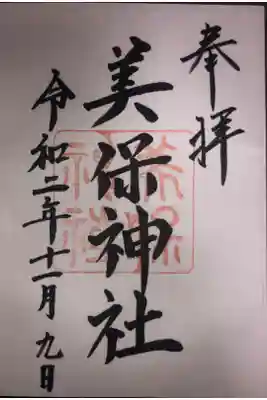 奉拝
美保神社
令和二年十一月九日